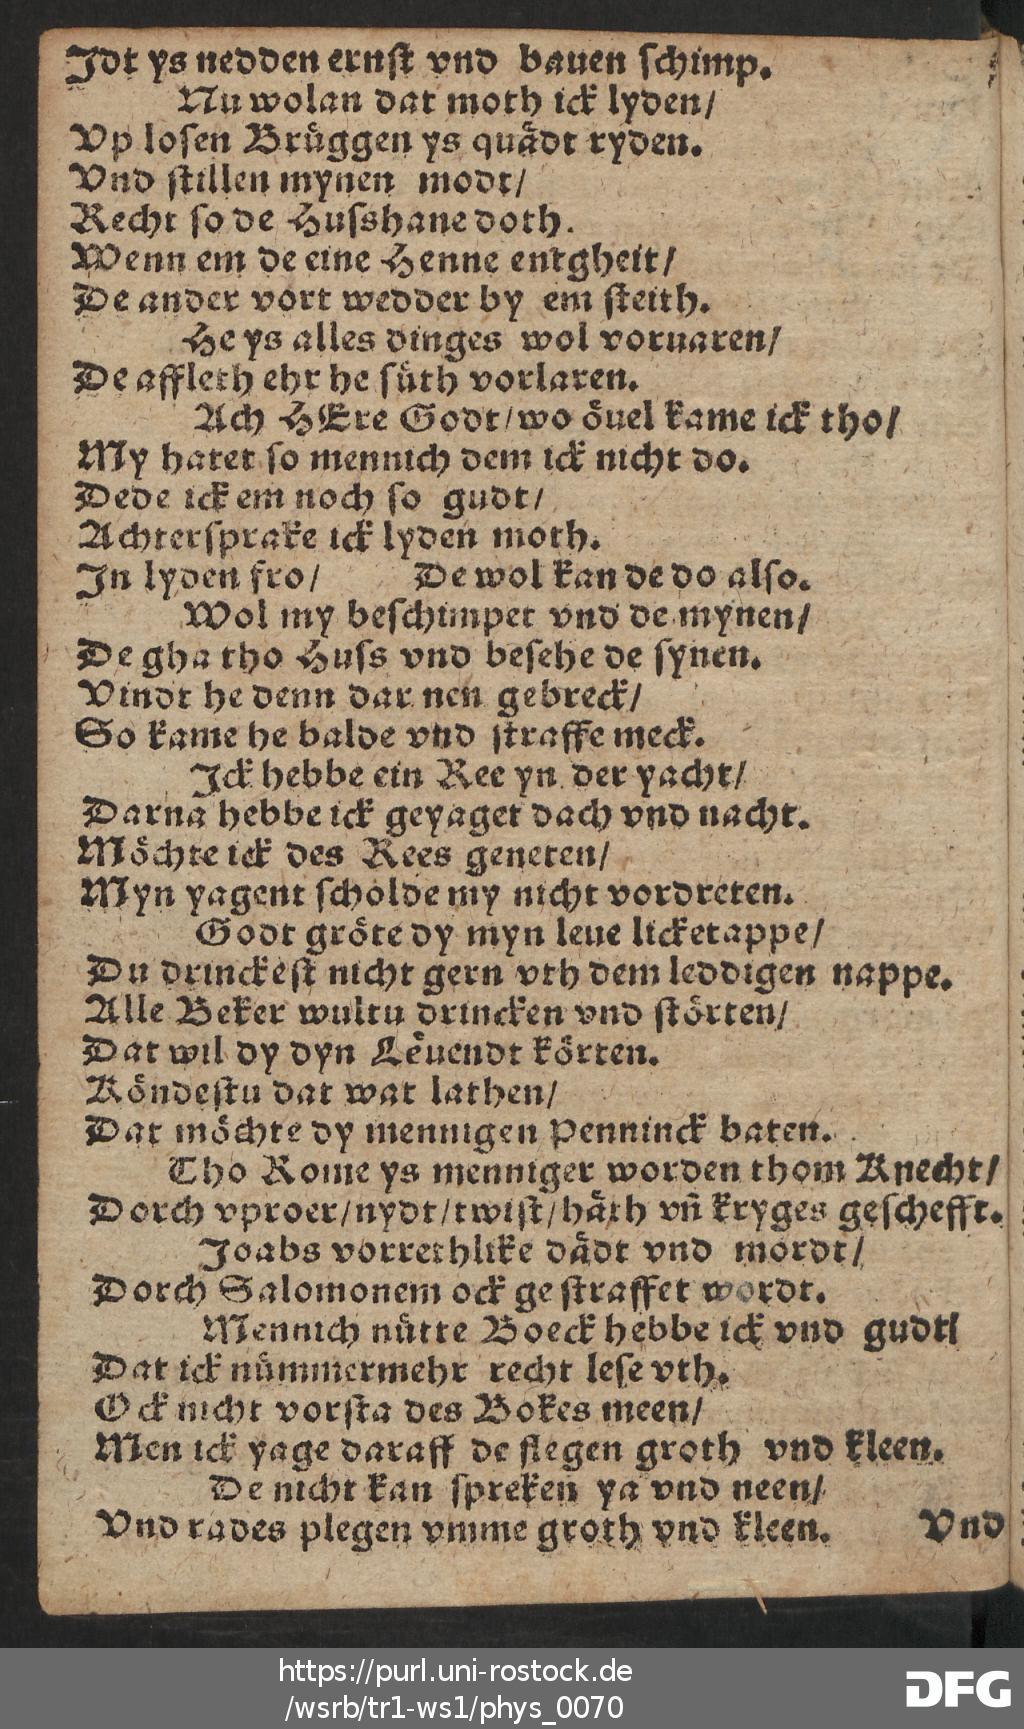 Jdt ys nedden ernſt vnd bauen ſchimp.
Nu wolan dat moth ick lyden/
Vp loſen Brüggen ys quädt ryden.
Vnd ſtillen mynen modt/
Recht ſo de Huſshane doth.
Wenn em de eine Henne entgheit/
De ander vort wedder by em ſteith.
He ys alles dinges wol voruaren/
De affleth ehr he ſüth vorlaren.
Ach HEre Godt/wo öuel kame ick tho/
My hatet ſo mennich dem ick nicht do.
Dede ick em noch ſo gudt/
Achterſprake ick lyden moth.
In lyden fro/ De wol kan de do alſo.
Wol my beſchimpet vnd de mynen/
De gha tho Huſs vnd beſehe de ſynen.
Vindt he denn dar nen gebreck/
So kame he balde vnd ſtraffe meck.
Ick hebbe ein Ree yn der yacht/
Darna hebbe ick geyaget dach vnd nacht.
Möchte ick des Rees geneten/
Myn yagent ſcholde my nicht vordreten.
Godt gröte dy myn leue licketappe/
Du drinckeſt nicht gern vth dem leddigen nappe.
Alle Beker wultu drincken vnd ſtörten/
Dat wil dy dyn Leuendt körten.
Köndeſtu dat wat lathen/
Dat möchte dy mennigen Penninck baten.
Tho Rome ys menniger worden thom Knecht/
Dorch vproer/nydt/twiſt/häth vn̄ kryges geſchefft.
Joabs vorrethlike dädt vnd mordt/
Dorch Salomonem ock geſtraffet wordt.
Mennich nütte Boeck hebbe ick vnd gudt/
Dat ick nümmermehr recht leſe vth.
Ock nicht vorſta des Bokes meen/
Men ick yage daraff de flegen groth vnd kleen.
De nicht kan ſpreken ya vnd neen/
Vnd rades plegen vmme groth vnd kleen. Vnd
https://purl.uni-rostock.de
/wsrb/tr1-ws1/phys_0070
DFG